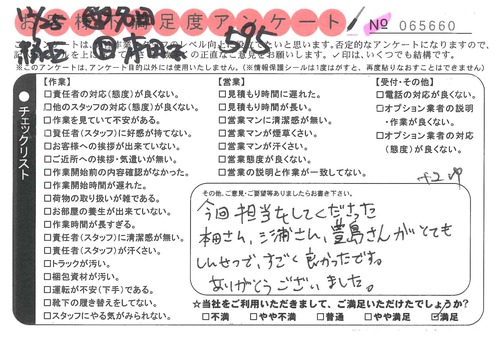 お客様満足度アンケート
No 065660
11/25
595
このアンケートは
レベル向上に役立てたいと思います。否定的なアンケートになりますので、
正直なご意見をお願いします。✓印は、いくつでも結構です。
※このアンケートは、アンケート目的以外には使用いたしません。(※情報保護シールは1度はがすと、再度貼りなおすことはできません)
チェックリスト
【作業】
□責任者の対応(態度)が良くない。
□他のスタッフの対応(態度)が良くない。
□作業を見ていて不安がある。
□責任者(スタッフ)に好感が持てない。
□お客様への挨拶が出来ていない。
□ご近所への挨拶・気遣いが無い。
□作業開始前の内容確認がなかった。
□作業開始時間が遅れた。
□荷物の取り扱いが雑である。
□お部屋の養生が出来ていない。
□作業時間が長すぎる。
□責任者(スタッフ)に清潔感が無い。
□責任者(スタッフ)が汗くさい。
□トラックが汚い。
□梱包資材が汚い。
□運転が不安(下手)である。
□靴下の履き替えをしてない。
□スタッフにやる気がみられない。
【営業】
□見積もり時間に遅れた。
□見積もり時間が長い。
□営業マンに清潔感が無い。
□営業マンが煙草くさい。
□営業マンが汗くさい。
□営業態度が良くない。
□営業の説明と作業が一致してない。
【受付・その他】
□電話の対応が良くない。
□オプション業者の説明
・作業が良くない。
□オプション業者の対応
(態度)が良くない。
その他、ご意見・ご要望等ありましたらお書き下さい。
今回担当をしてくださった
本田さん、三浦さん、豊島さんがとても
しんせつで、すごく良かったです。
ありがとうございました。
☆当社をご利用いただきまして、ご満足いただけたでしょうか?
□不満 □やや不満 □普通 □やや満足 ☑満足